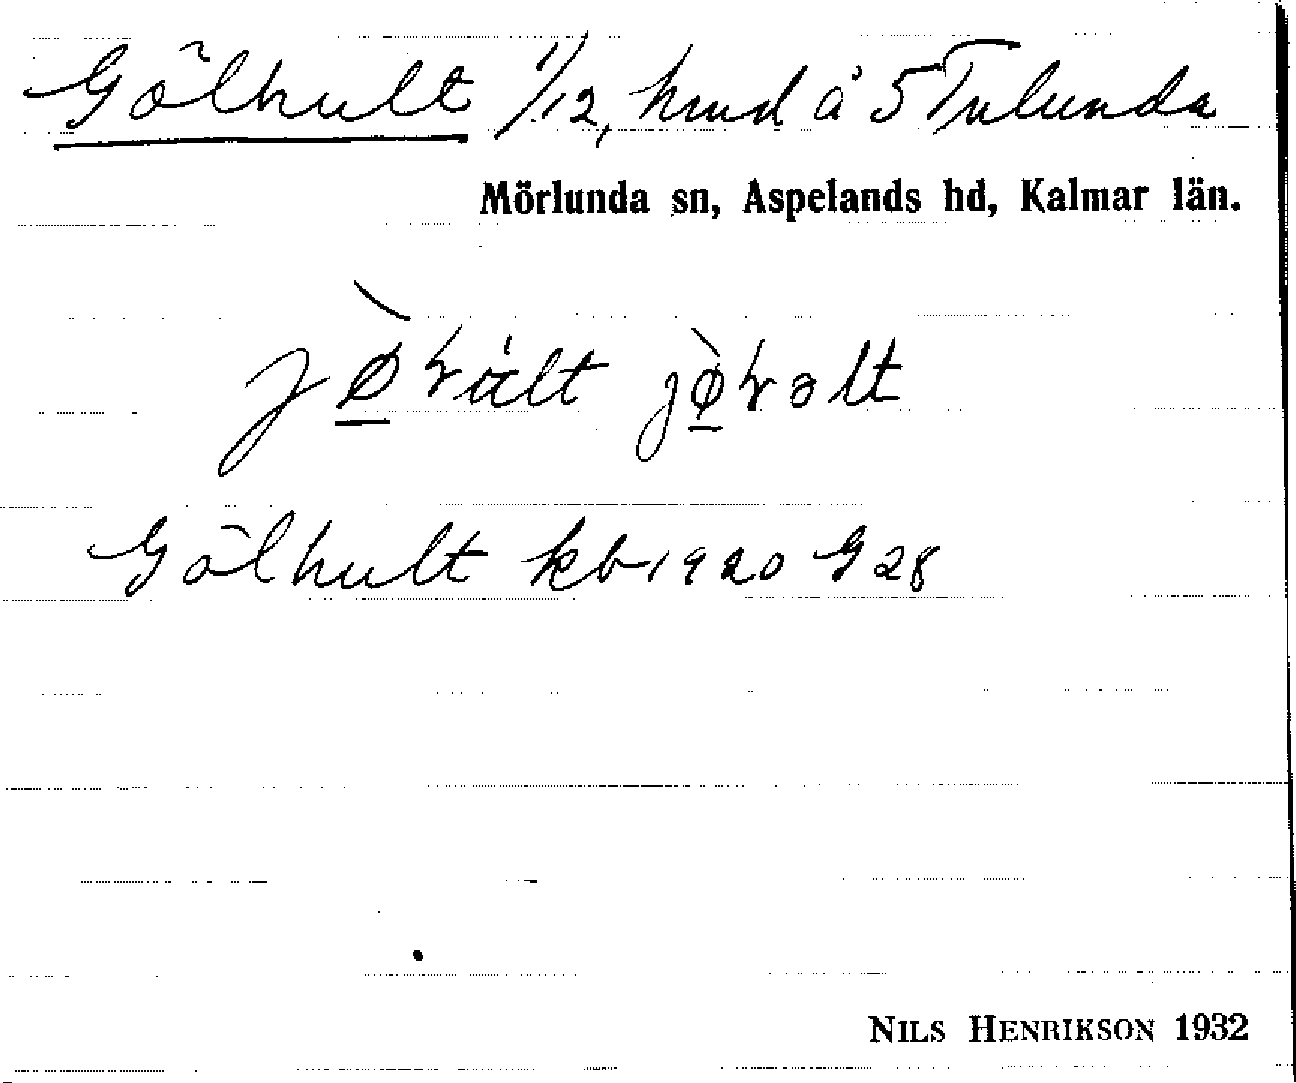 Gölhult 1/12, hmd å 5 Tulunda
Mörlunda sn, Aspelands hd, Kalmar län.
Gölhult kb 1920 G 28
NILS HENRIKSON 1932